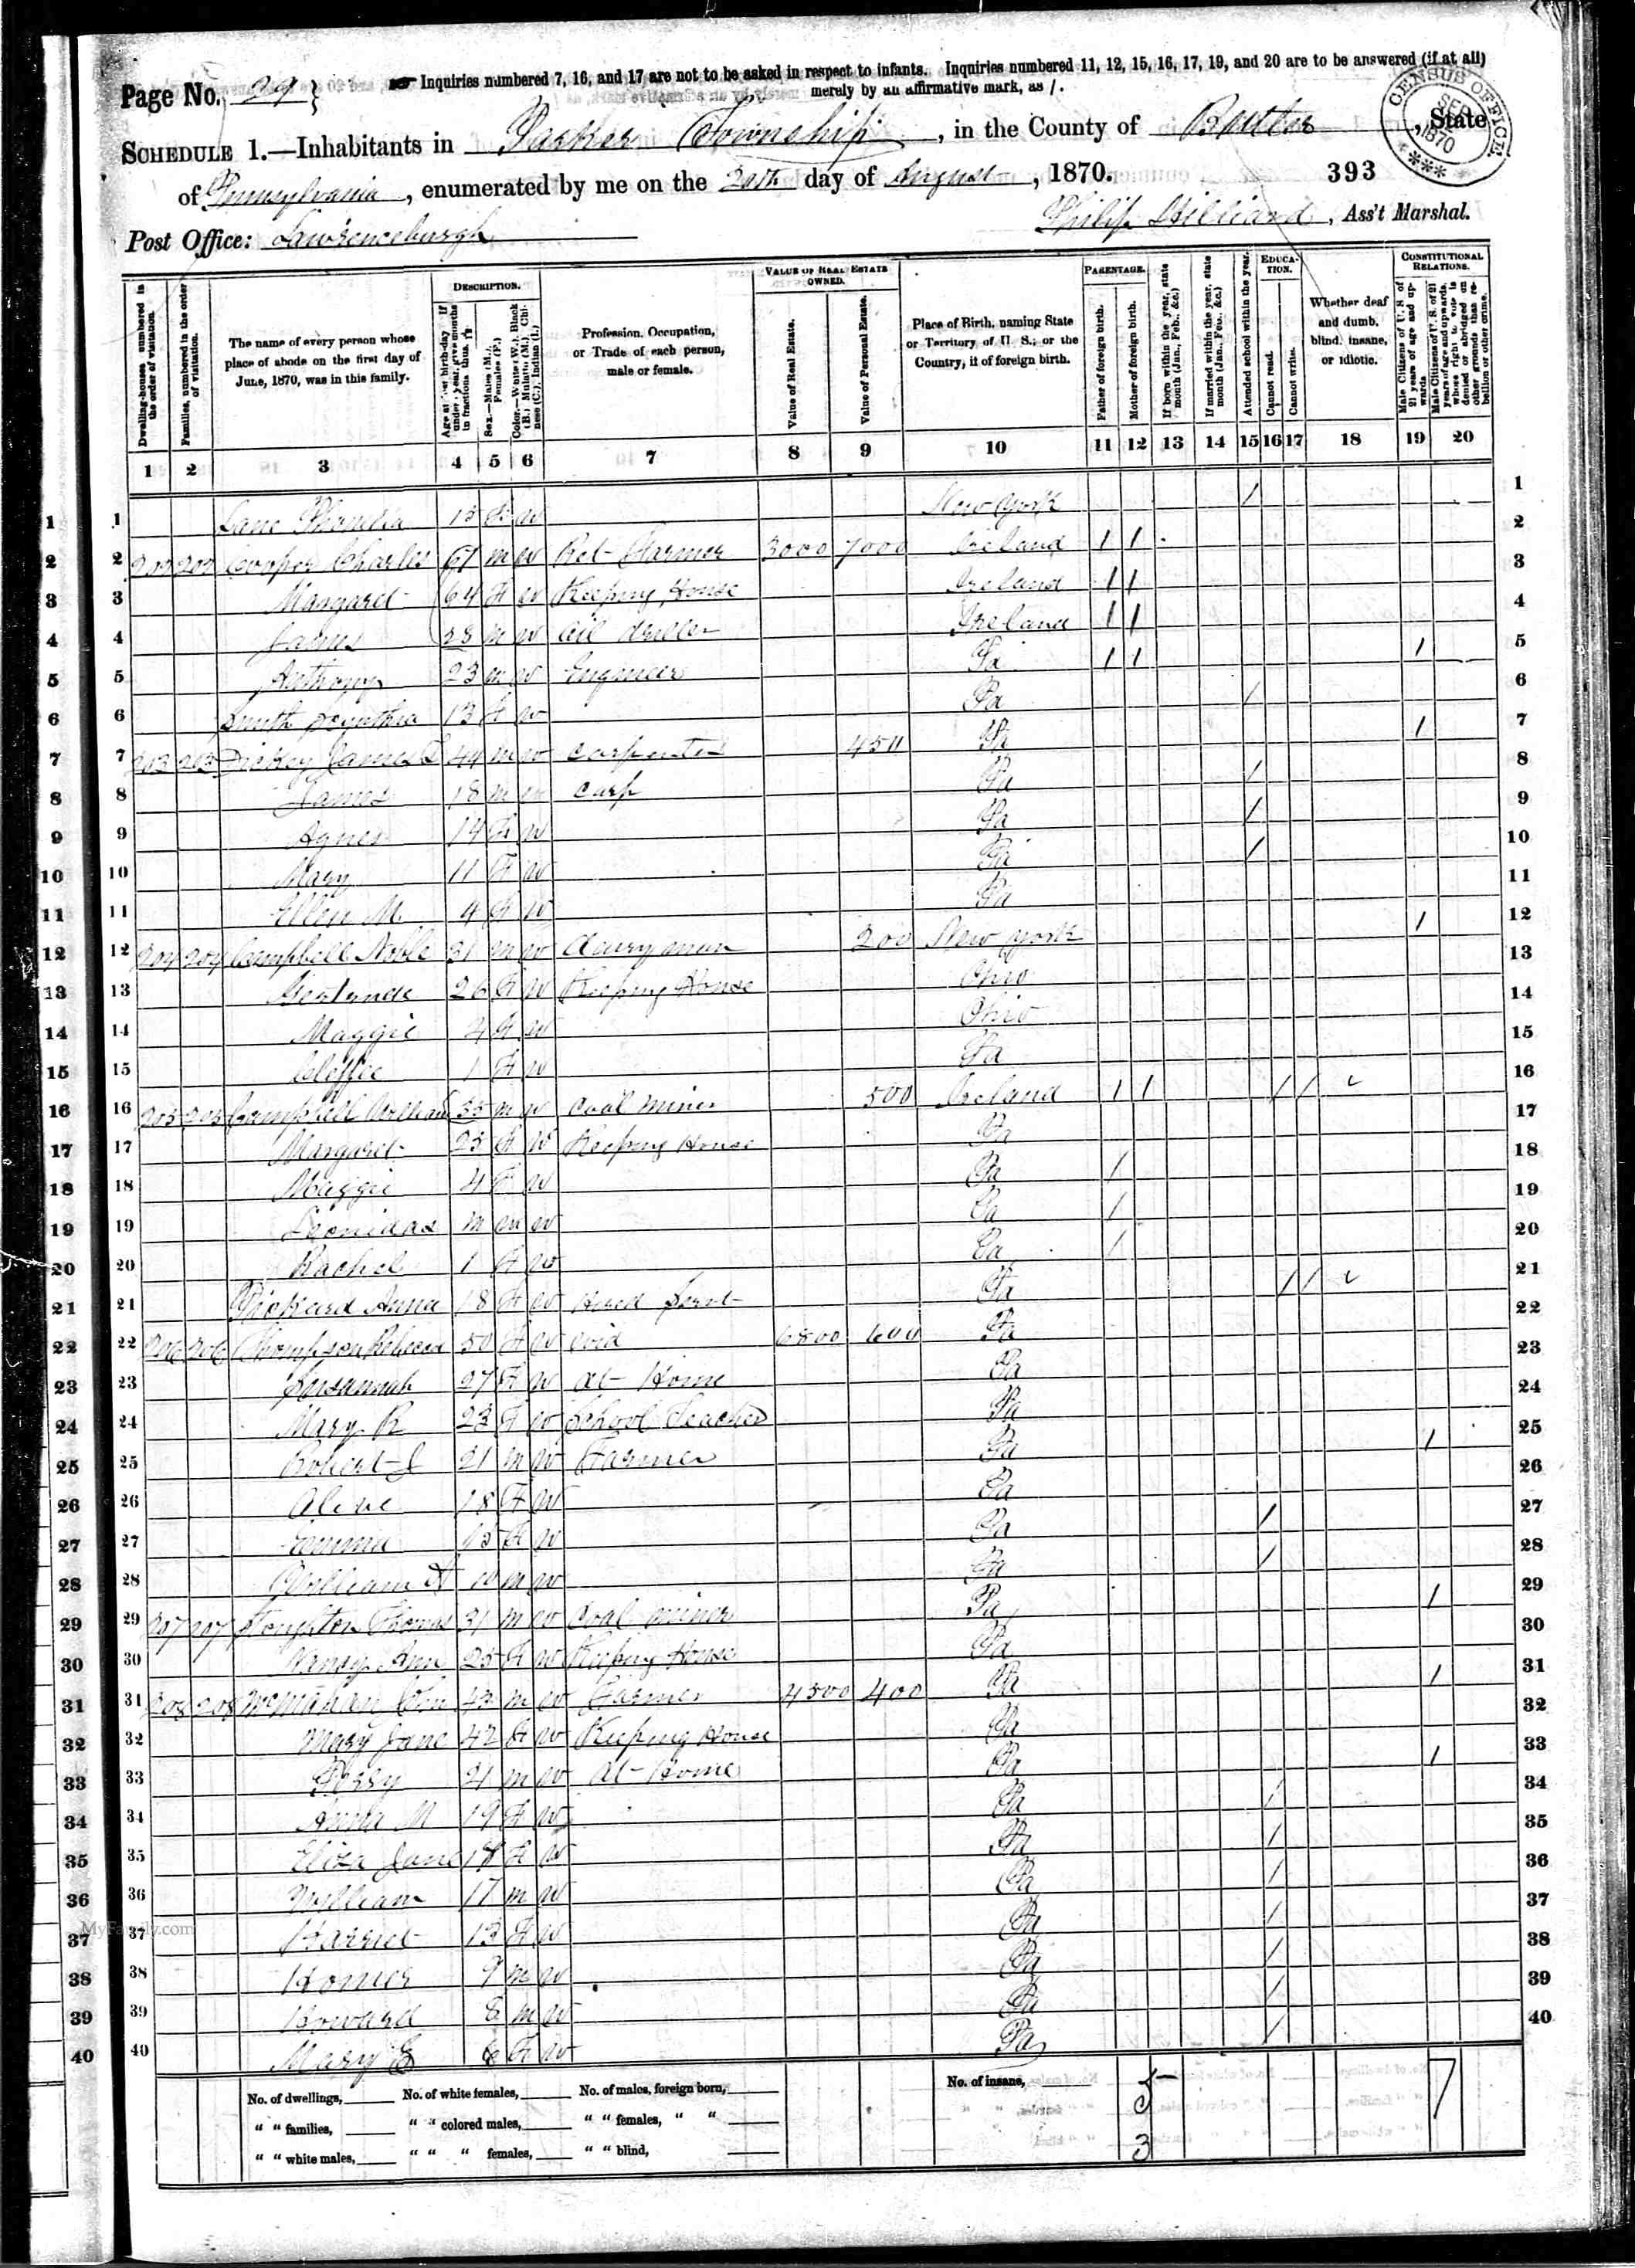 Page No. 29 } Inquiries numbered 7, 16, and 17 are not to be asked in respect to infants. Inquiries numbered 11, 12, 15, 16, 17, 19, and 20 are to be answered (if at all)
merely by an affirmative mark, as /.
SCHEDULE 1.—Inhabitants in Parker Township, in the County of Butler, State
of Pennsylvania, enumerated by me on the 20th day of August, 1870. 393
Post Office: Lawrenceburgh Philip Hilliard, Ass't Marshal.
CENSUS OFFICE 1870
Dwelling-houses numbered in the order of visitation.
Families, numbered in the order of visitation.
The name of every person whose place of abode on the first day of June, 1870, was in this family.
DESCRIPTION.
Sex.—Males (M.), Females (F.)
Color.—White (W.), Black (B.), Mulatto (M.), Chinese (C.), Indian (I.)
Profession, Occupation, or Trade of each person, male or female.
VALUE OF REAL ESTATE OWNED.
Value of Real Estate.
Value of Personal Estate.
Place of Birth, naming State or Territory of U. S.; or the Country, if of foreign birth.
PARENTAGE.
Father of foreign birth.
Mother of foreign birth.
If born within the year, state month (Jan., Feb., &c.)
If married within the year, state month (Jan., Feb., &c.)
EDUCATION.
Attended school within the year.
Cannot read.
Cannot write.
Whether deaf and dumb, blind, insane, or idiotic.
CONSTITUTIONAL RELATIONS.
Male Citizens of U. S. of 21 years of age and upwards
1 2 3 4 5 6 7 8 9 10 11 12 13 14 15 16 17 18 19 20
1 Lane F W New York /
2 202 202 Cooper Charles 67 M W Ret Farmer 3000 7000 Ireland / /
3 Margaret 64 F W Keeping House Ireland / /
4 James M W Oil driller Ireland / /
5 Anthony 23 M W Engineer Pa / / /
6 Smith 13 F W Pa /
7 203 203 Dickey James 44 M W Carpenter 450 Pa /
8 James 18 M W Carp Pa /
9 Agnes 14 F W Pa /
10 Mary 11 F W Pa /
11 Ellen M. 4 F W Pa
12 204 204 Campbell Noble 31 M W 200 New York /
13 Gertrude 26 F W Keeping House Ohio
14 Maggie 4 F W Ohio
15 1 F W Pa
16 205 205 Campbell William 35 M W Coal Miner 500 Ireland / / / /
17 Margaret 25 F W Keeping House Pa
18 Maggie 4 F W Pa /
19 Leonidas M W Pa /
20 Rachel 1 F W Pa /
21 Pickard Anna 18 F W Hired Servt Pa / /
22 206 206 Thompson Rebecca 50 F W 6800 600 Pa
23 Susannah 27 F W At Home Pa
24 Mary R 23 F W School Teacher Pa
25 Robert J 21 M W Farmer Pa /
26 18 F W Pa
27 Emma 15 F W Pa /
28 William 10 M W Pa /
29 207 207 Stoughton Thomas 31 M W Coal Miner Pa /
30 Nancy Ann 25 F W Keeping House Pa
31 208 208 McMahan 43 M W Farmer 4500 400 Pa /
32 Mary Jane 42 F W Keeping House Pa
33 Perry 21 M W At Home Pa /
34 Anna M 19 F W Pa /
35 Eliza Jane 18 F W Pa /
36 William 17 M W Pa /
37 Harriet 13 F W Pa /
38 Homer 9 M W Pa /
39 Howard 8 M W Pa /
40 Mary E 6 F W Pa /
No. of dwellings, No. of white females, No. of males, foreign born, No. of insane, 5
" " families, " " colored males, " " females, " "
" " white males, " " " females, " " blind, 3
7
MyFamily.com